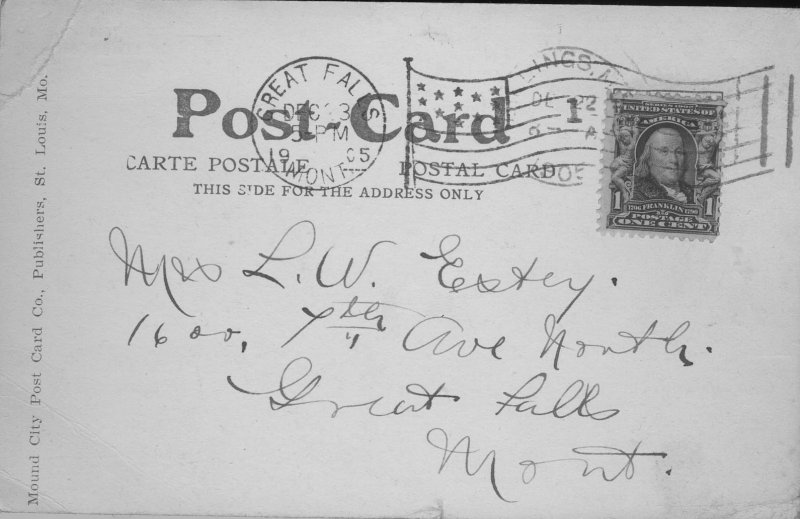 Mound City Post Card Co., Publishers, St. Louis, Mo.
Post-Card
CARTE POSTALE POSTAL CARD
THIS SIDE FOR THE ADDRESS ONLY
GREAT FALLS
DEC 3
PM
19 05
MONT.
LINGS,
DE 22
1
UNITED STATES OF
AMERICA
1 1
FRANKLIN
POSTAGE
ONE CENT
Mrs L. W. Estey.
1600, 7th Ave North.
Great Falls
Mont.